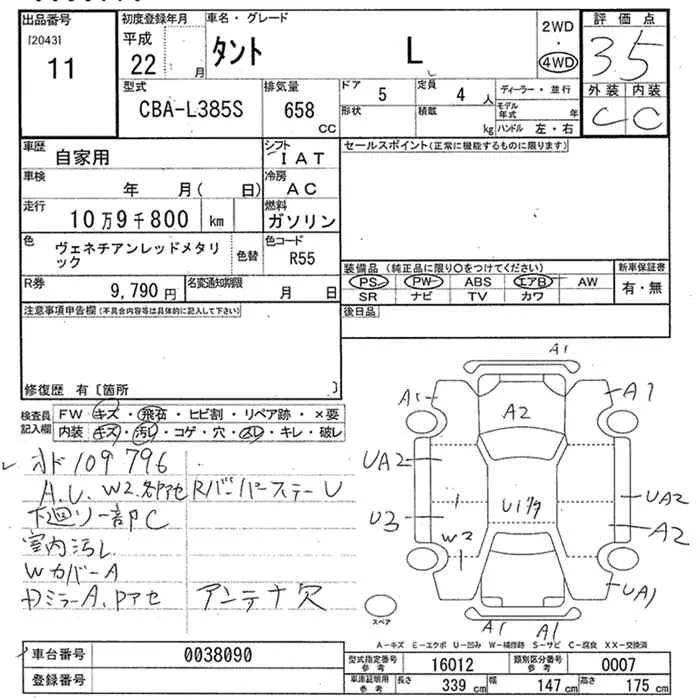 出品番号 初度登録年月 車名・グレード 2WD 評価点
[2043] 平成 タント L ・ 35
11 22 月 4WD 外装 内装
型式 排気量 ドア 5 定員 4 人 ディーラー・並行 C C
CBA-L385S 658 CC 形状 積載 kg モデル年式 年
ハンドル 左・右
車歴 自家用 シフト IAT セールスポイント(正常に機能するものに限ります)
車検 年 月( 日) 冷房 AC
走行 10万9千800 km 燃料 ガソリン
色 ヴェネチアンレッドメタリック 色替 色コード R55
装備品 (純正品に限り○をつけてください) 新車保証書
R券 9,790円 名変通知期限 月 日 PS PW ABS エアB AW 有・無
SR ナビ TV カワ
注意事項申告欄(不具合内容等は具体的に記入して下さい) 後日品
修復歴 有〔箇所 〕
検査員記入欄 FW キズ・飛石・ヒビ割・リペア跡・×要
内装 キズ・汚レ・コゲ・穴・スレ・キレ・破レ
A1
A1 A2 A1
UA2 U1 UA2
U3 W2 A2
UA1
A1 A1
スペア
オド109796
A.U.W2.各部アセ Rバンパーステー U
下廻リ一部C
室内汚レ
WカバーA
DミラーA.Pアセ アンテナ穴
A-キズ E-エクボ U-凹み W-補修跡 S-サビ C-腐食 XX-交換済
車台番号 0038090 型式指定番号 参考 16012 類別区分番号 参考 0007
登録番号 車庫証明用 参考 長さ 339 cm 幅 147 cm 高さ 175 cm